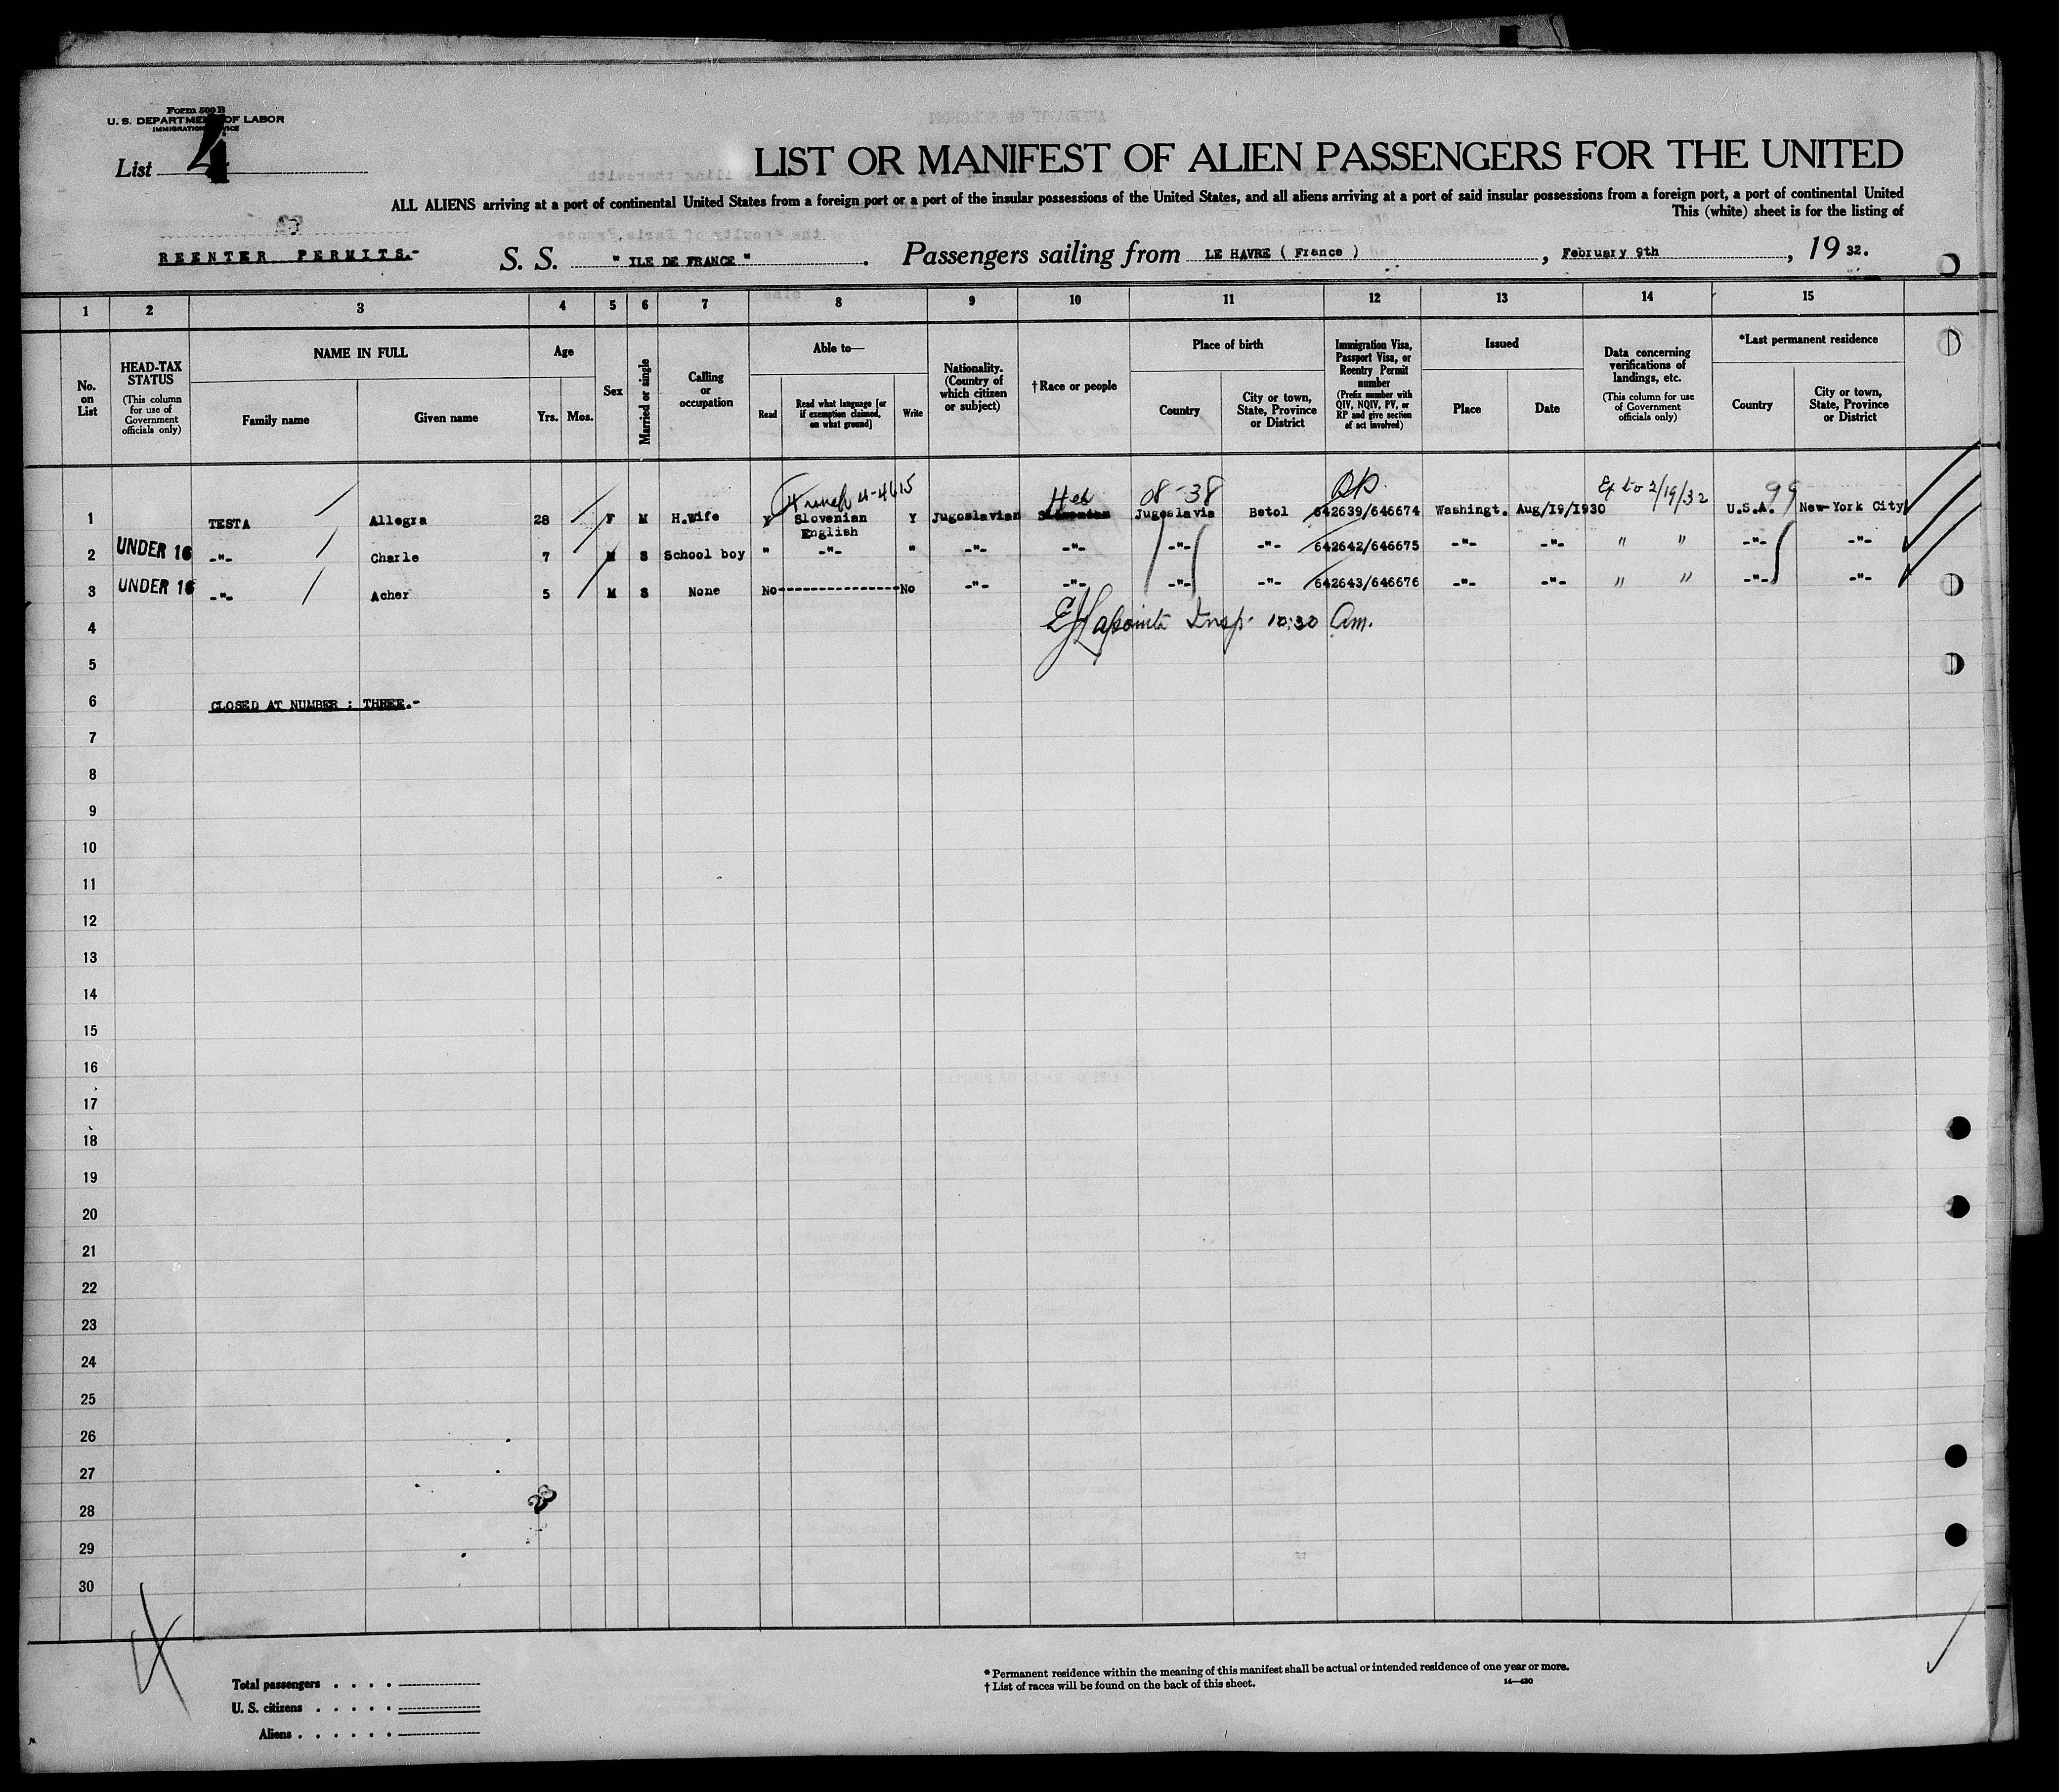 Form 500 B
U. S. DEPARTMENT OF LABOR
IMMIGRATION SERVICE
List 4
LIST OR MANIFEST OF ALIEN PASSENGERS FOR THE UNITED
ALL ALIENS arriving at a port of continental United States from a foreign port or a port of the insular possessions of the United States, and all aliens arriving at a port of said insular possessions from a foreign port, a port of continental United
This (white) sheet is for the listing of
REENTER PERMITS.-
S. S. " ILE DE FRANCE " . Passengers sailing from LE HAVRE ( France ) , February 9th , 19 32.
1 2 3 4 5 6 7 8 9 10 11 12 13 14 15
No. on List
HEAD-TAX STATUS (This column for use of Government officials only)
NAME IN FULL
Family name
Given name
Age
Yrs. Mos.
Sex
Married or single
Calling or occupation
Able to—
Read
Read what language [or if exemption claimed, on what ground]
Write
Nationality. (Country of which citizen or subject)
†Race or people
Place of birth
Country
City or town, State, Province or District
Immigration Visa, Passport Visa, or Reentry Permit number (Prefix number with QIV, NQIV, PV, or RP and give section of act involved)
Issued
Place
Date
Data concerning verifications of landings, etc. (This column for use of Government officials only)
*Last permanent residence
Country
City or town, State, Province or District
French Heb 08-38 Ex to 2/19/32 99
1 TESTA Allegra 28 F M H.Wife Y Slovenian Y Jugoslavian Slovenian Jugoslavia Betol 642639/646674 Washingt. Aug/19/1930 U.S.A. New-York City
English
2 UNDER 16 -"- Charle 7 M S School boy " -"- " -"- -"- -"- -"- 642642/646675 -"- -"- " " -"- -"-
3 UNDER 16 -"- Acher 5 M S None No--------------No -"- -"- -"- -"- 642643/646676 -"- -"- " " -"- -"-
4 Lapointe Insp. 10:30 Am.
5
6 CLOSED AT NUMBER : THREE.-
7
8
9
10
11
12
13
14
15
16
17
18
19
20
21
22
23
24
25
26
27
28
29
30
Total passengers . . . .
U. S. citizens . . . . .
Aliens . . . . . .
* Permanent residence within the meaning of this manifest shall be actual or intended residence of one year or more.
† List of races will be found on the back of this sheet.
14—430